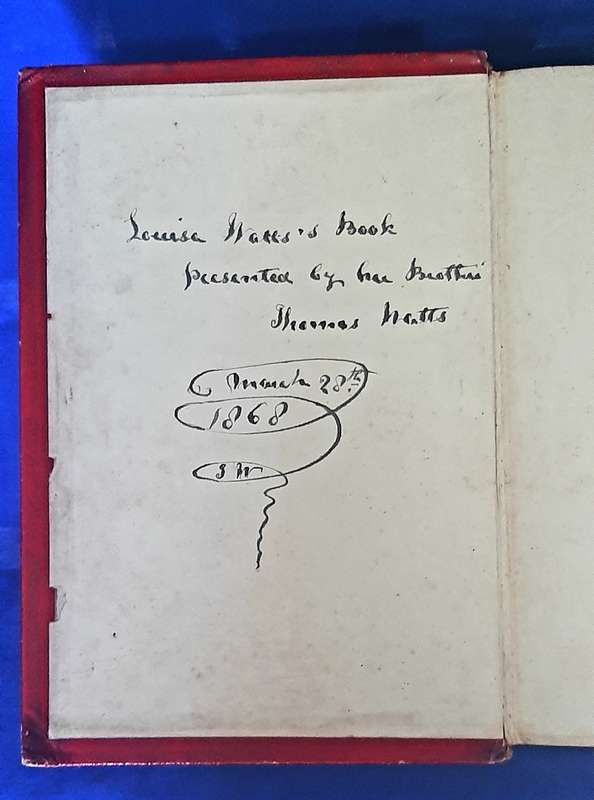 Louisa Watts's Book
presented by her Brother
Thomas Watts
March 28th
1868